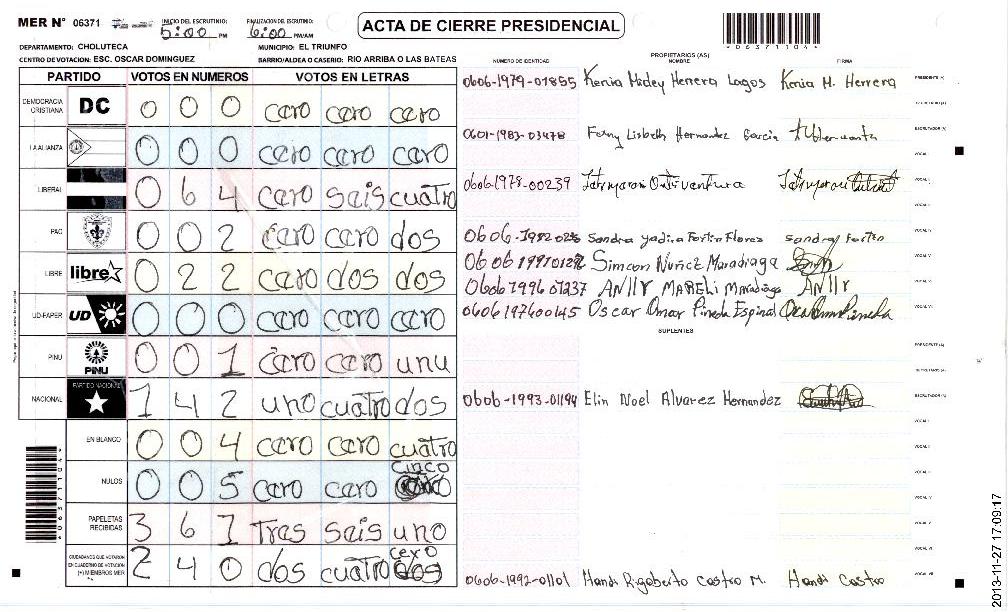 MER N° 06371
INICIO DEL ESCRUTINIO: 5:00 PM
FINALIZACION DEL ESCRUTINIO: 6:00 PM/AM
ACTA DE CIERRE PRESIDENCIAL
*063711044*
DEPARTAMENTO: CHOLUTECA
MUNICIPIO: EL TRIUNFO
CENTRO DE VOTACION: ESC. OSCAR DOMINGUEZ
BARRIO/ALDEA O CASERIO: RIO ARRIBA O LAS BATEAS
PARTIDO VOTOS EN NUMEROS VOTOS EN LETRAS
NUMERO DE IDENTIDAD PROPIETARIOS (AS) NOMBRE FIRMA
DEMOCRACIA CRISTIANA DC 0 0 0 cero cero cero
LA ALIANZA 0 0 0 cero cero cero
LIBERAL 0 6 4 cero seis cuatro
PAC 0 0 2 cero cero dos
LIBRE libre 0 2 2 cero dos dos
UD-FAPER UD 0 0 0 cero cero cero
PINU PINU 0 0 1 cero cero unu
NACIONAL PARTIDO NACIONAL 1 4 2 uno cuatro dos
EN BLANCO 0 0 4 cero cero cuatro
NULOS 0 0 5 cero cero cinco
PAPELETAS RECIBIDAS 3 6 1 tres seis uno
CIUDADANOS QUE VOTARON EN CUADERNO DE VOTACION (+) MIEMBROS MER 2 4 0 dos cuatro cero
0606-1979-01855 Kenia Midey Herrera Lagos Kenia M. Herrera
PRESIDENTE (A)
SECRETARIO (A)
0601-1983-03478 Fany Lisbeth Hernandez Garcia
ESCRUTADOR (A)
VOCAL I
0606-1978-00239
VOCAL II
VOCAL III
Sandra Yadira Fortin Flores Sandra Fortin
VOCAL IV
Simeon Nuñez Maradiaga
VOCAL V
ANllY MARELi Maradiaga ANllY
VOCAL VI
0606197600145 Oscar Omar Pineda Espinal
VOCAL VII
SUPLENTES
PRESIDENTE (A)
SECRETARIO (A)
0606-1993-01194 Elin Noel Alvarez Hernandez
ESCRUTADOR (A)
VOCAL I
VOCAL II
VOCAL III
VOCAL IV
VOCAL V
VOCAL VI
0606-1992-01101 Handi Rigoberto Castro M. Handi Castro
VOCAL VII
*063711044*
2013-11-27 17:09:17